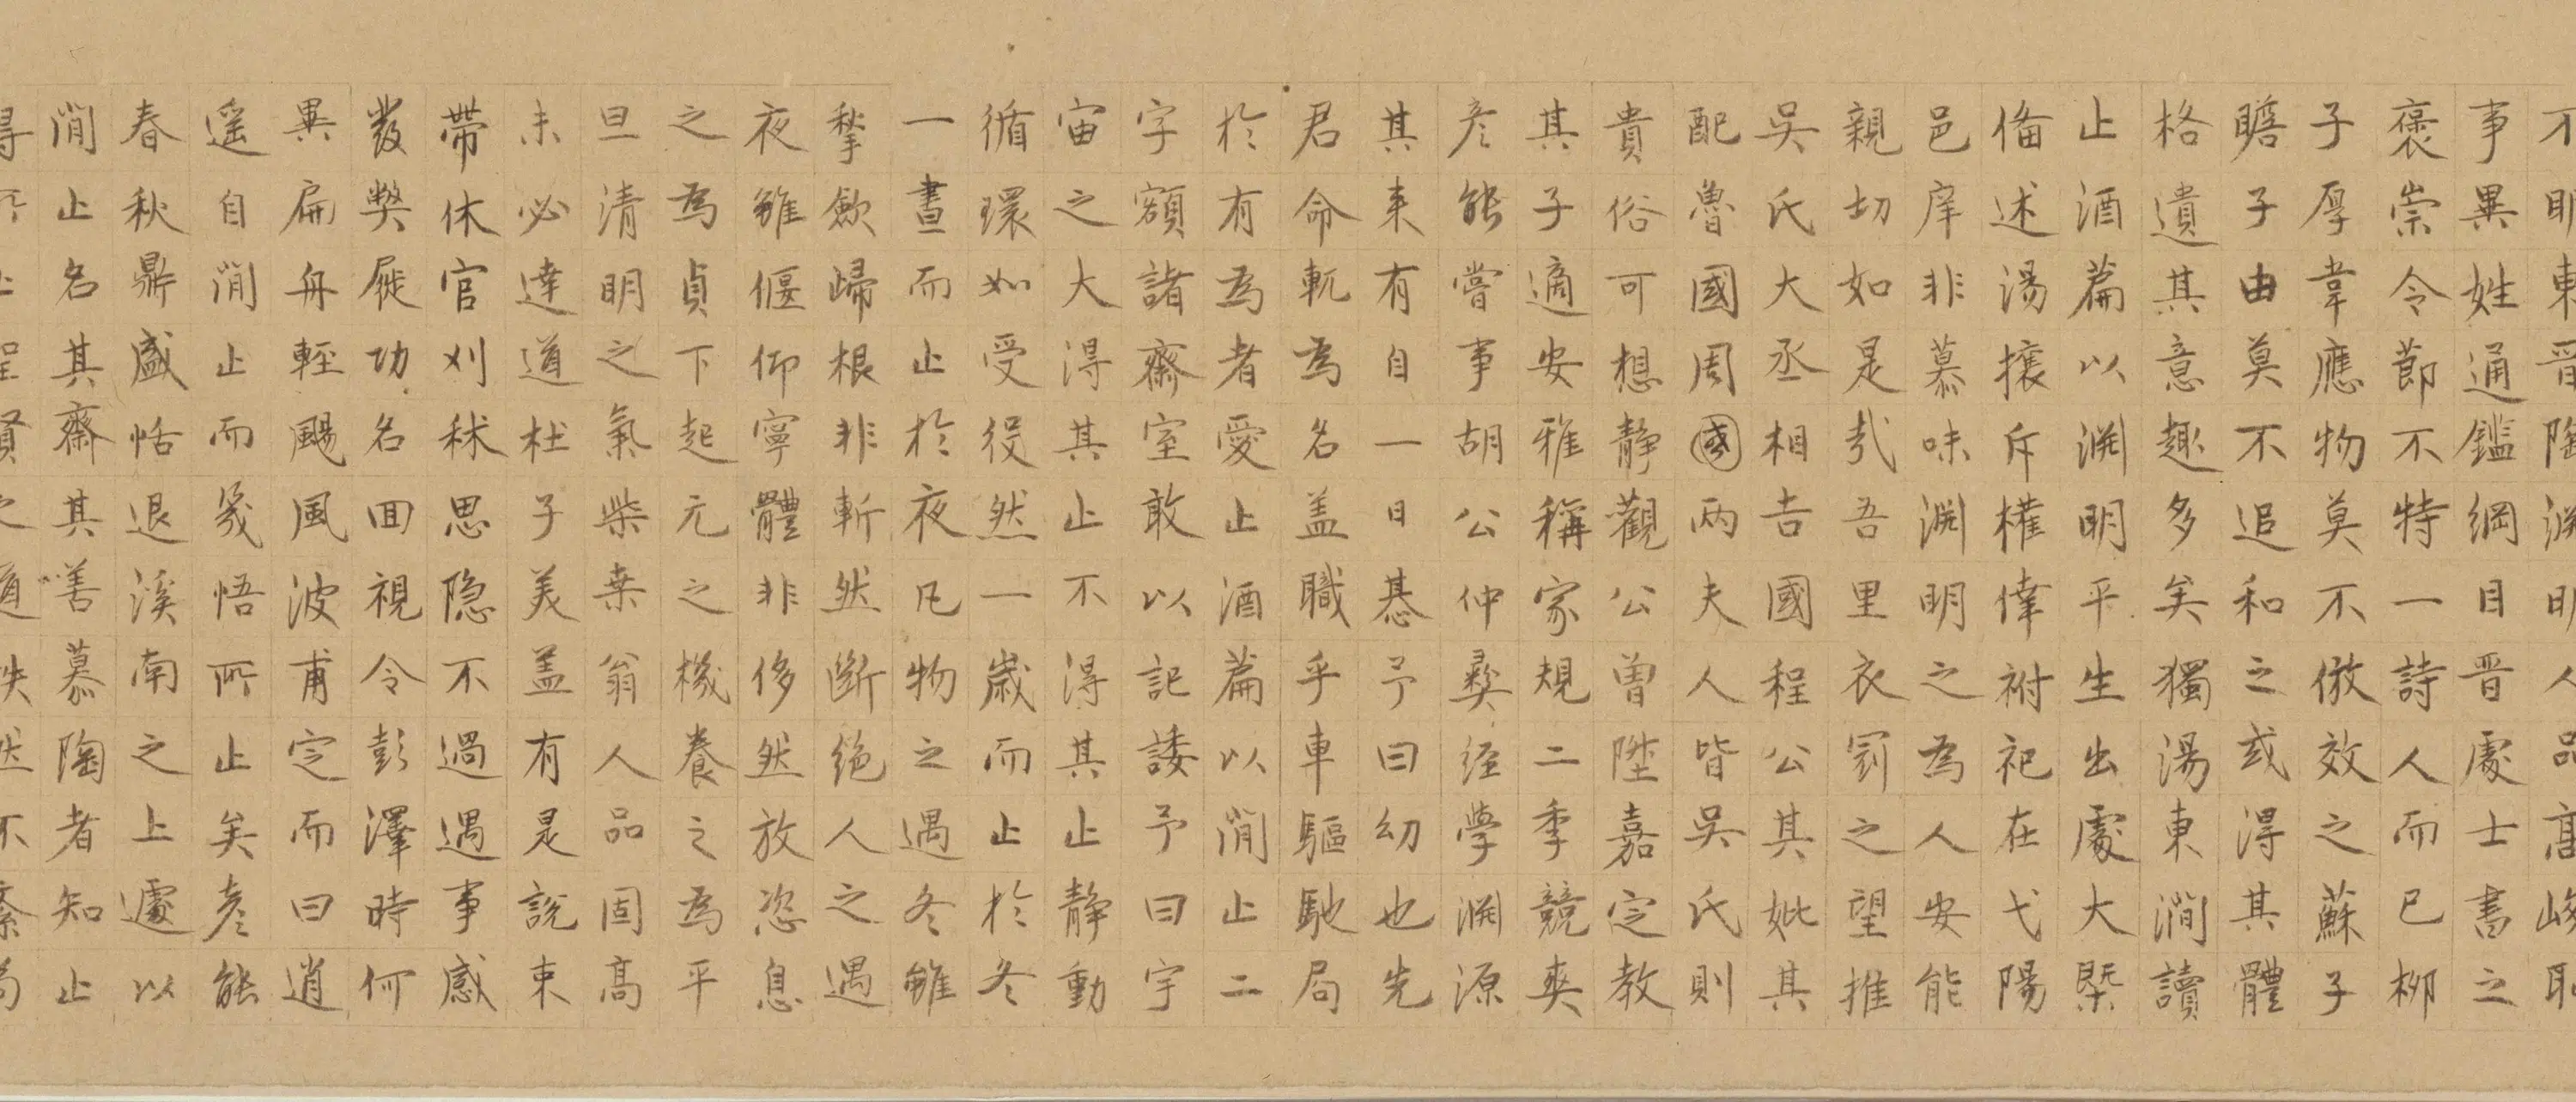 不明東晋陶淵明人品高峻耻
事異姓通鑑綱目晋處士書之
褒崇令節不特一詩人而已柳
子厚韋應物莫不倣效之蘇子
瞻子由莫不追和之或得其體
格遺其意趣多矣獨湯東澗讀
止酒篇以淵明平生出處大槩
備述湯攘斥權倖祔祀在弋陽
邑庠非慕味淵明之為人安能
親切如是哉吾里衣罰之望推
吳氏大丞相吉國程公其妣其
配魯國周國兩夫人皆吳氏則
貴俗可想静觀公曽陞嘉定教
其子適安雅稱家規二季競爽
彦能嘗事胡公仲彛経學淵源
其来有自一日惎予曰幼也先
君命軏為名盖職乎車驅馳局
於有為者愛止酒篇以閒止二
字額諸齋室敢以記諉予曰宇
宙之大得其止不得其止静動
循環如受役然一歲而止於冬
一晝而止於夜凡物之遇冬雖
揫歛歸根非斬然斷絶人之遇
夜雖偃仰寧體非侈然放恣息
之為貞下起元之機養之為平
旦清明之氣柴桒翁人品固高
未必達道杜子美盖有是說束
帶休官刈秫思隐不過遇事感
發獘屣功名回視令彭澤時何
異扁舟輕颺風波甫定而曰逍
遥自閒止而㡬悟所止矣彦能
春秋鼎盛恬退溪南之上遽以
閒止名其齋其善慕陶者知止